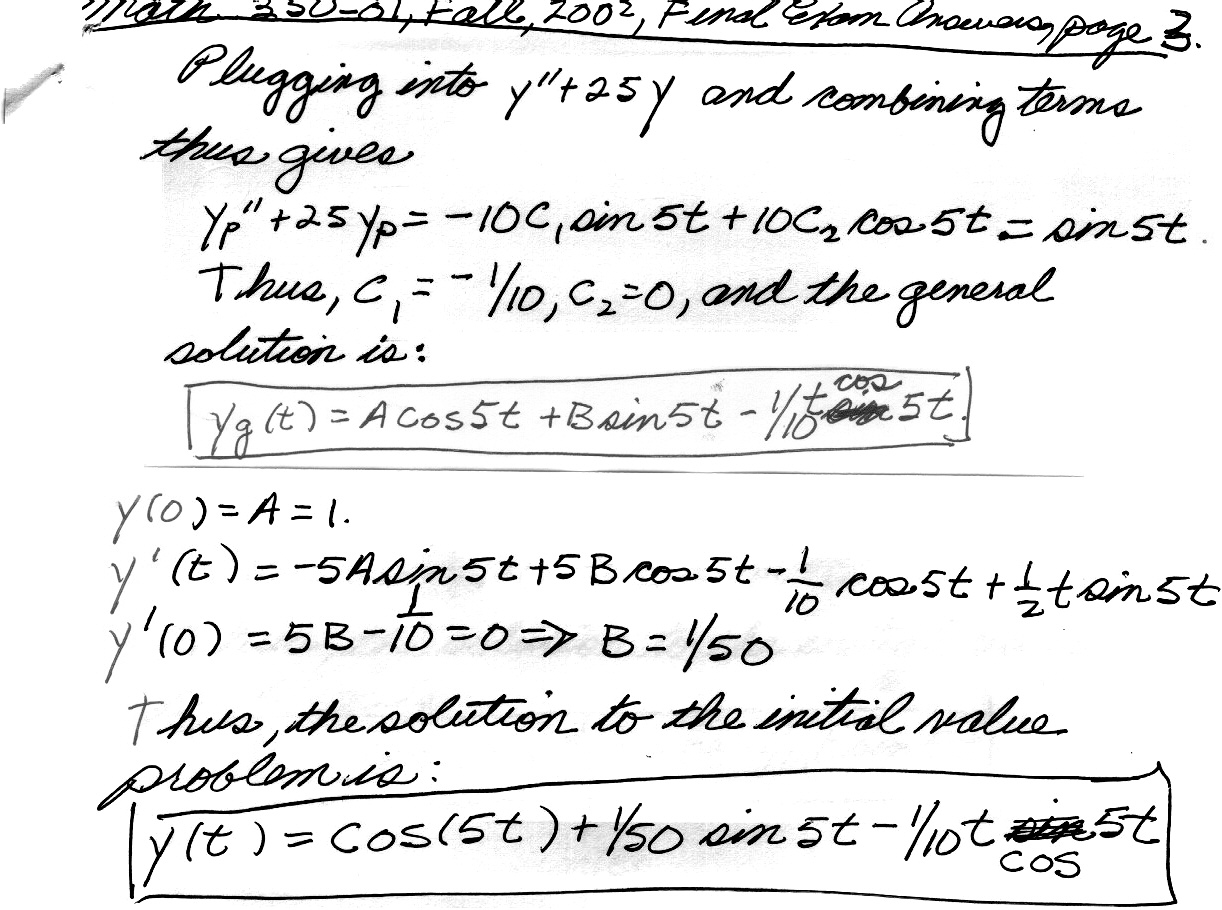 Math 350-01, Fall, 2002, Final Exam Answers, page 3.
Plugging into y''+25y and combining terms
thus gives
yp''+25yp = -10C₁ sin 5t + 10C₂ cos 5t = sin 5t.
Thus, C₁ = -1/10, C₂=0, and the general
solution is:
yg(t) = A cos5t + B sin5t - 1/10 t cos 5t.
y(0) = A = 1.
y'(t) = -5A sin 5t + 5B cos 5t - 1/10 cos 5t + 1/2 t sin 5t
y'(0) = 5B - 1/10 = 0 ⇒ B = 1/50
Thus, the solution to the initial value
problem is:
y(t) = cos(5t) + 1/50 sin 5t - 1/10 t cos 5t